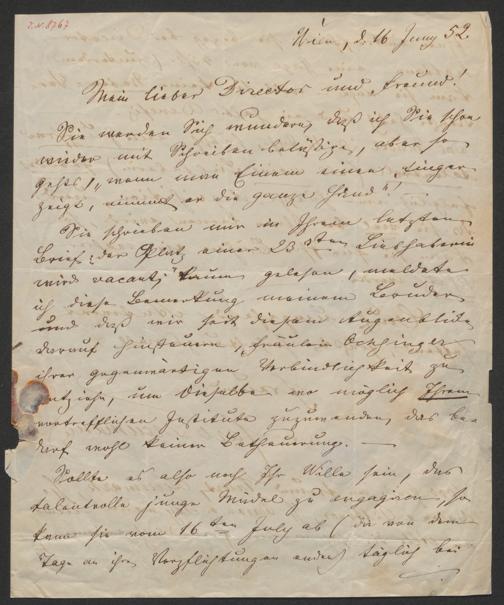 I.N. 8767
Wien, d. 16 Juny 52
Mein lieber Director und Freund!
Sie werden Sich wundern, daß ich Sie schon
wieder mit Schreiben belästige, aber so
gehts, „wenn man Einem einen Finger
zeigt, nimmt er die ganze Hand"!
Sie schrieben mir in Ihrem letzten
Brief: „der Platz einer 23sten Liebhaberin
wird vacant;" kaum gelesen, meldete
ich diese Bemerkung meinem Bruder
und daß wir seit diesem Augenblicke
darauf hinsteuern, Fräulein
ihrer gegenwärtigen Verbindlichkeit zu
entziehn, um dieselbe wo möglich Ihrem
vortrefflichen Institute zuzuwenden, das be-
darf wohl keiner Betheuerung. —
Sollte es also noch Ihr Wille sein, das
talentvolle junge Mädel zu engagiren, so
kann sie vom 16ten July ab (da von dem
Tage an ihre Verpflichtungen enden) täglich bei